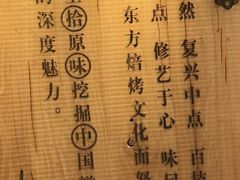 然 复兴中点 百
点 修艺于心 味
东方焙烤文化而
拾原味挖掘中国
的深度魅力。